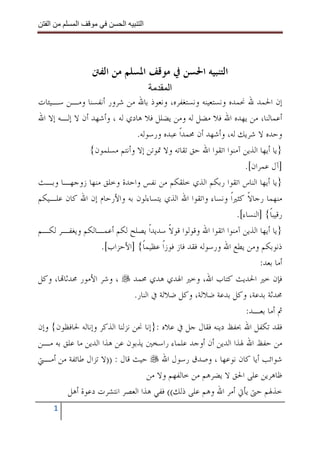 التنبيه الحسن في موقف المسلم من الفتن
التنبيه الحسن في موقف المسلم من الفتن
المقدمة
إن الحمد لله نحمده ونستعينه ونستغفره، ونعوذ بالله من شرور أنفسنا ومـــن ســـيئات
أعمالنا، من يهده الله فلا مضل له ومن يضلل فلا هادي له ، وأشهد أن لا إلــه إلا الله
وحده لا شريك له، وأشهد أن محمداً عبده ورسوله.
{يا أيها الذين آمنوا اتقوا الله حق تقاته ولا تموتن إلا وأنتم مسلمون}
[آل عمران].
{يا أيها الناس اتقوا ربكم الذي خلقكم من نفس واحدة وخلق منها زوجهـــا وبـــث
منهما رجالاً كثيراً ونساء، واتقوا الله الذي يتساءلون به والأرحام إن الله كان علـــيكم
رقيباً} [النساء].
{يا أيها الذين آمنوا اتقوا الله وقولوا قولاً سديداً يصلح لكم أعمـــالكم ويغفـــر لكـــم
ذنوبكم ومن يطع الله ورسوله فقد فاز فوزاً عظيماً} [الأحزاب].
أما بعد:
فإن خير الحديث كتاب الله، وخير الهدي هدي محمد ﷺ ، وشر الأمور محدثاتها، وكل
محدثة بدعة، وكل بدعة ضلالة، وكل ضلالة في النار.
ثم أما بعـــد:
فقد تكفل الله بحفظ دينه فقال جل في علاه :{إنا نحن نزلنا الذكر وإناله لحافظون} وإن
من حفظ الله لهذا الدين أن أوجد علماء راسخين يذبون عن هذا الدين ما علق به مـــن
شوائب أيا كان نوعها ، وصدق رسول الله ﷺ حيث قال : ((لا تزال طائفة من أمـــتي
ظاهرين على الحق لا يضرهم من خالفهم ولا من
خذلهم حتى يأتي أمر الله وهم على ذلك)) ففي هذا العصر انتشرت دعوة أهل
1